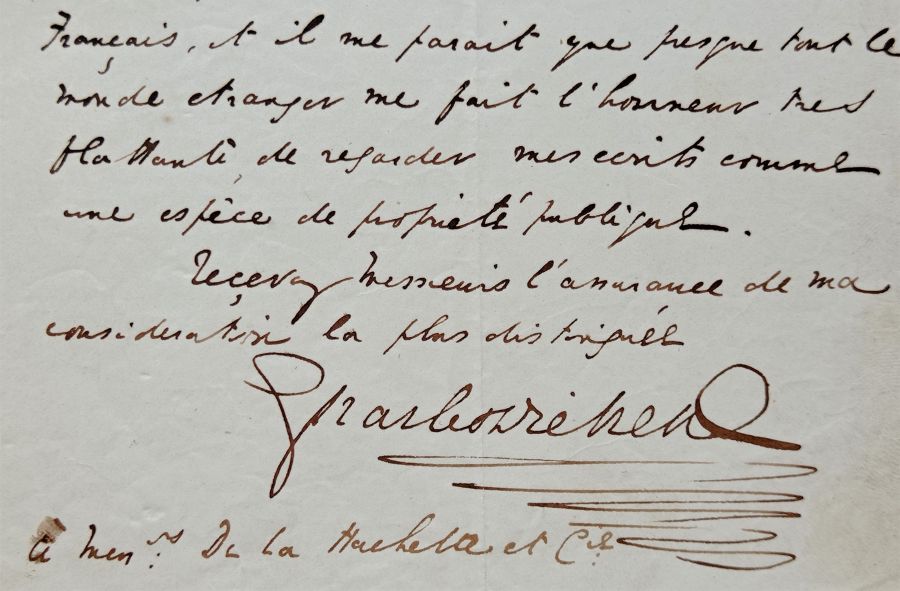 Français, et il me parait que presque tout le
monde etranger me fait l'honneur tres
flattante, de regarder mes ecrits comme
une espèce de proprieté publique.
Reçevez Messieurs l'assurance de ma
consideration la plus distinguée
Charles Dickens
a Mess.rs De La Hachette et Cie